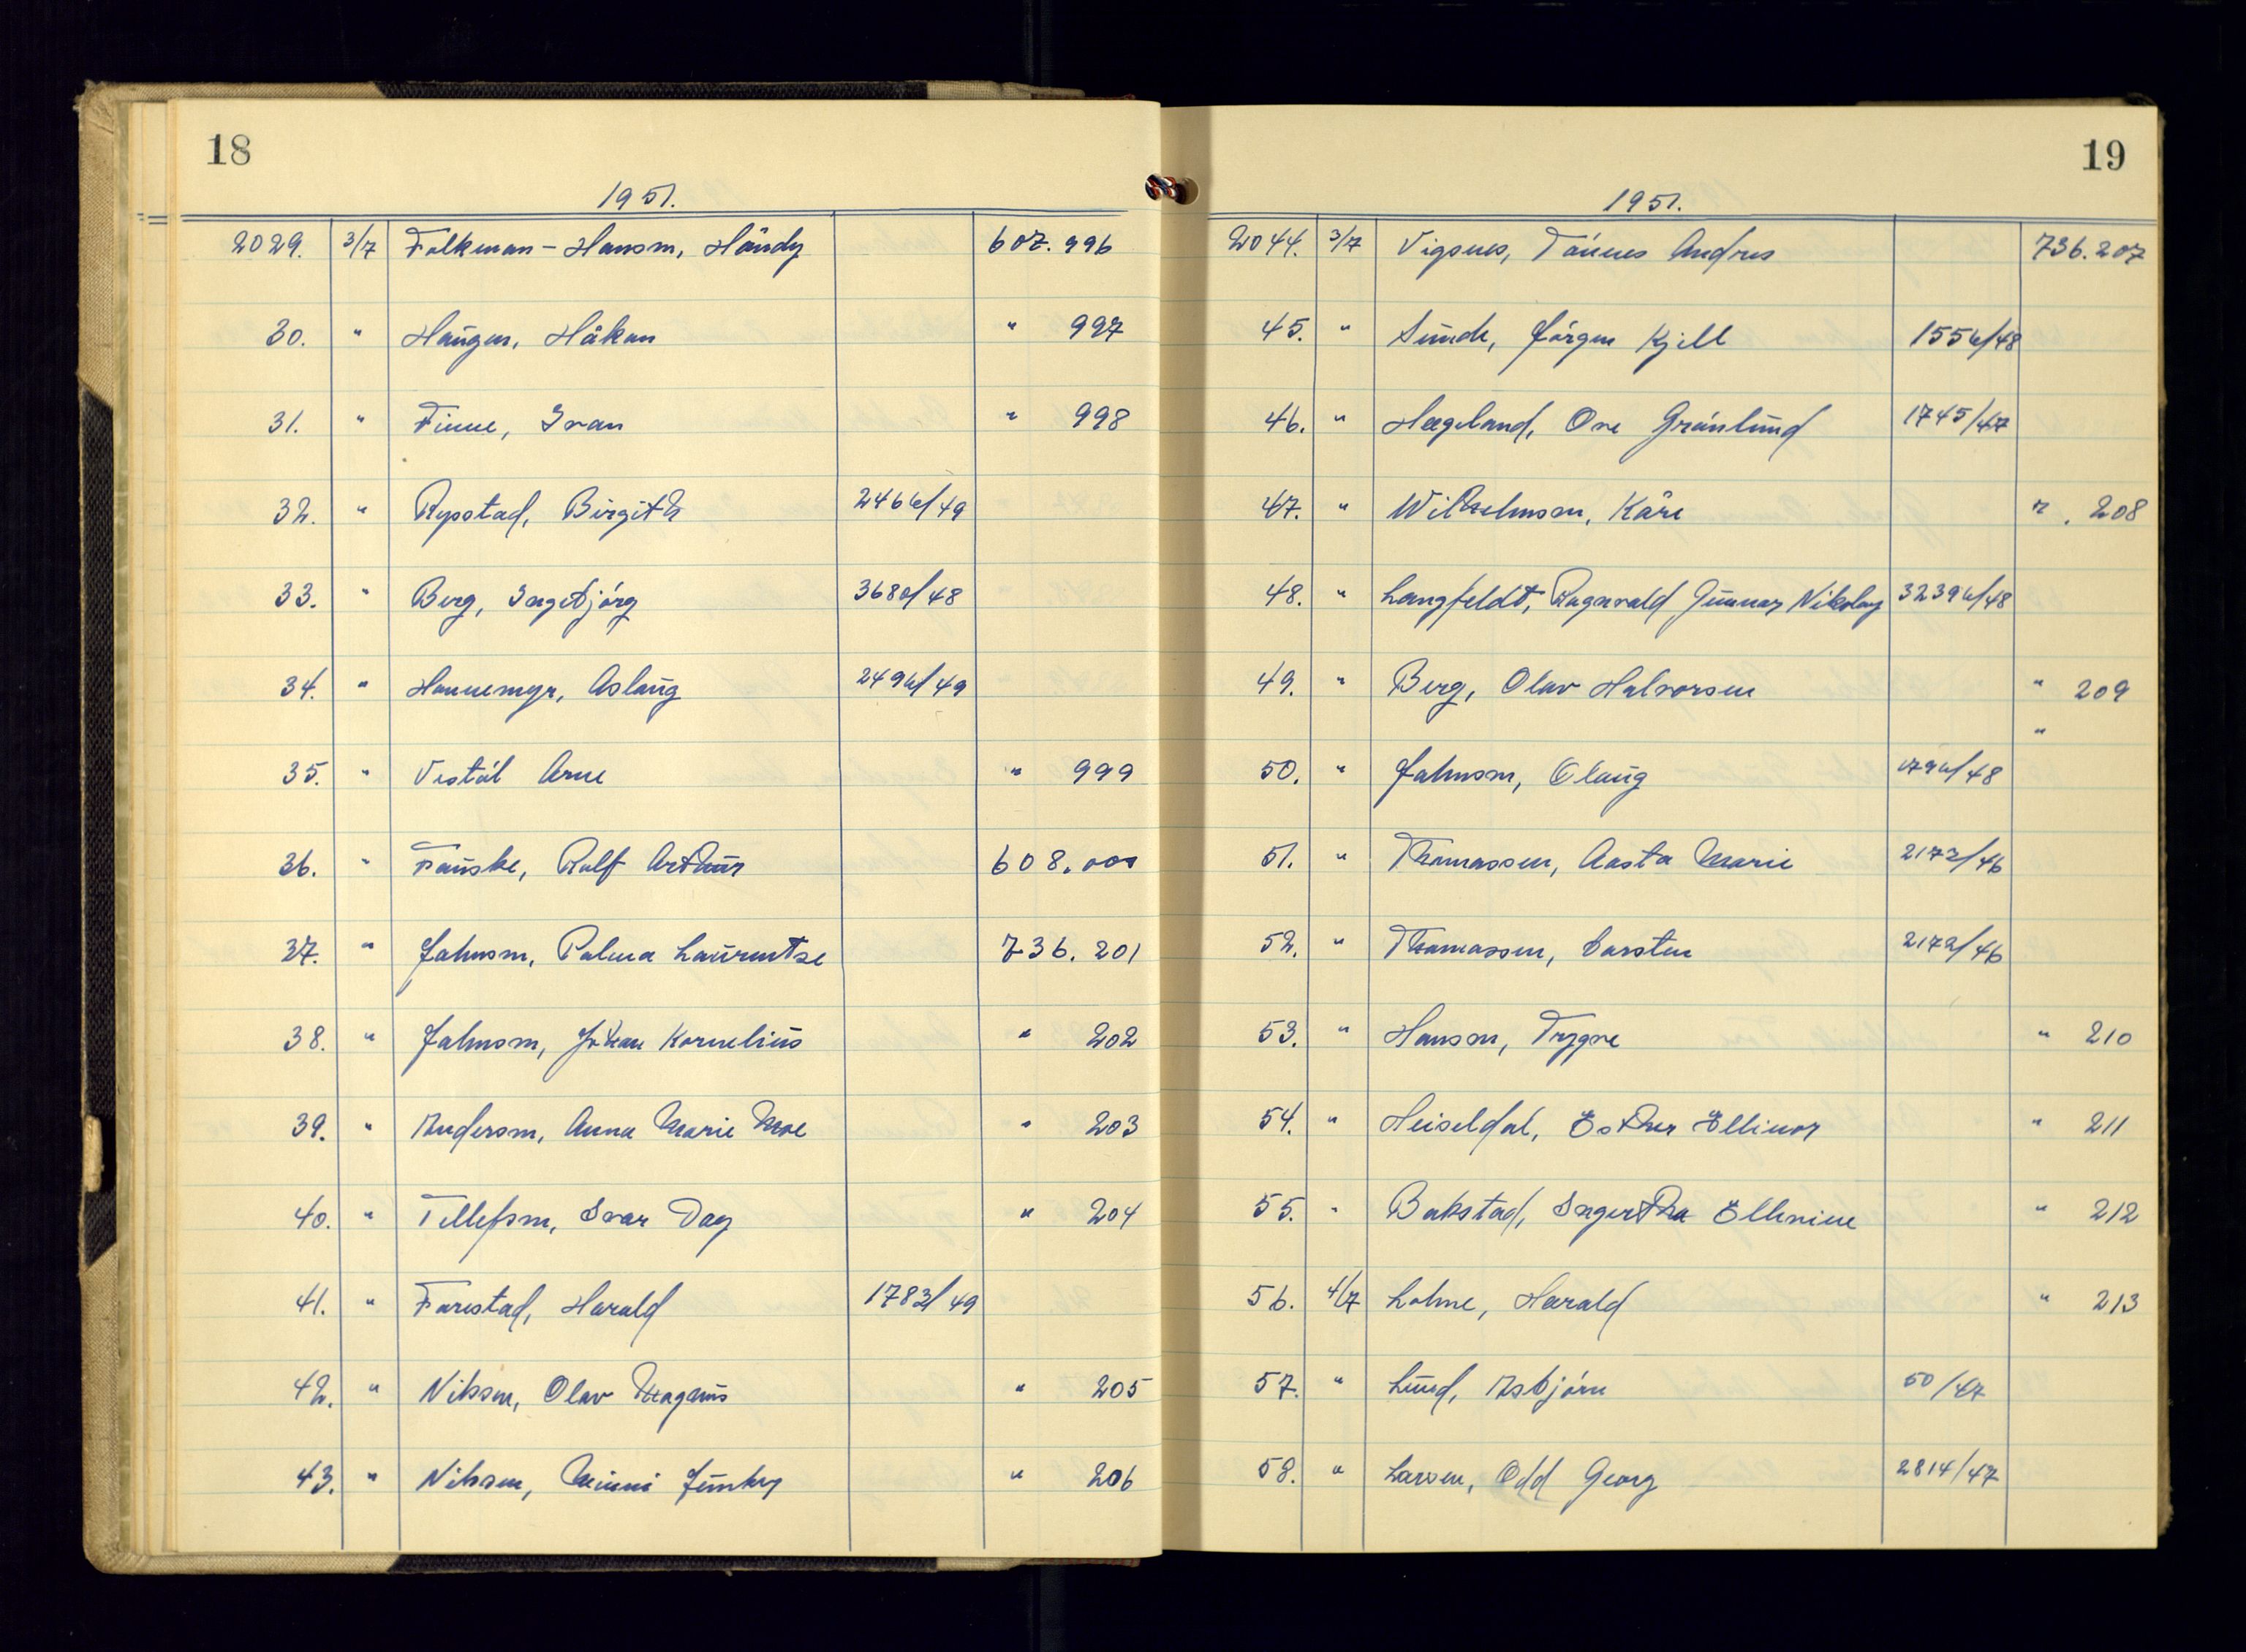 18
1951.
2029. 3/7 Folkman-Hansen, Händy 607.996
30. " Haugen, Håkon " 997
31. " Finne, Ivan " 998
32. " Rypstad, Birgith 2466/49
33. " Berg, Ingebjörg 3680/48
34. " Hannemyr, Aslaug 2496/49
35. " Vestöl Arne " 999
36. " Fauske, Rolf Arthur 608.000
37. " Johnsen, Palma Laurentze 736.201
38. " Johnsen, Johan Kornelius " 202
39. " Andersen, Anna Marie Moe " 203
40. " Tellefsen, Ivar Dag " 204
41. " Farestad, Harald 1783/49
42. " Nilssen, Olav Magnus " 205
43. " Nilssen, Minni " 206
19
1951.
2044. 3/7 Vigsnes, Tönnes Andres 736.207
45. " Sunde, Jörgen Kjell 1556/48
46. " Hægeland, Ove Grönlund 1745/47
47. " Wilhelmsen, Kåre " . 208
48. " Langfeldt, Ragnvald Gunnar Nikolay 3239/48
49. " Berg, Olav Halvorsen " 209
"
50. " Johnsen, Olaug /48
51. " Thomassen, Aasta Marie 2173/46
52. " Thomassen, Carsten 2172/46
53. " Hansen, Trygve " 210
54. " Heiseldal, Esther Ellinor " 211
55. " Bakstad, Ingertha Ellenine " 212
56. 4/7 Lohne, Harald " 213
57. " Lund, Asbjörn 50/47
58. " Larsen, Odd Georg 2814/47